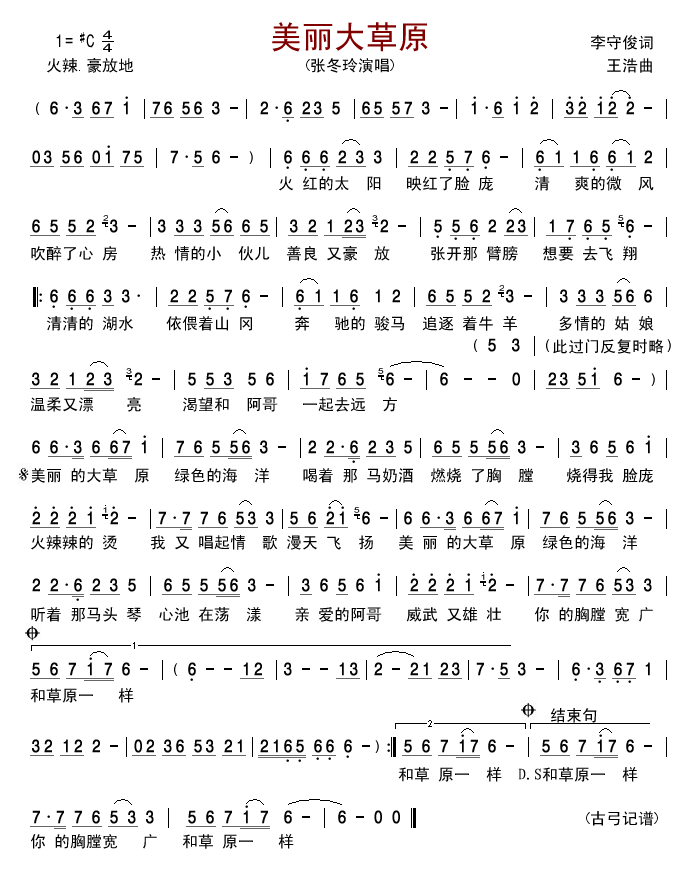 美丽大草原
1= #C 4/4
李守俊词
火辣.豪放地
(张冬玲演唱)
王浩曲
( 6·3 67 1 | 76 56 3 - | 2·6 23 5 | 65 57 3 - | 1·6 1 2 | 32 12 2 - |
03 56 01 75 | 7·5 6 - ) | 6 66 23 3 | 22 57 6 - | 61 16 61 2 |
火 红的太 阳 映红了脸 庞 清 爽的微 风
65 52 23 - | 33 356 65 | 32 123 32 - | 55 62 23 | 17 65 56 - |
吹醉了心 房 热 情的小 伙儿 善良 又豪 放 张开那 臂膀 想要 去飞 翔
‖: 6 66 3 3· | 22 57 6 - | 61 16 1 2 | 65 52 23 - | 33 356 6 |
清清的 湖水 依偎着山 冈 奔 驰的 骏马 追逐 着牛 羊 多情的 姑 娘
( 5 3 | (此过门反复时略)
32 123 32 - | 55 35 56 | 17 65 56 - | 6 - - 0 | 23 51 6 - ) |
温柔又漂 亮 渴望和 阿哥 一起去远 方
6 6·3 667 1 | 76 556 3 - | 22·6 23 5 | 65 556 3 - | 36 56 1 |
美丽 的大草 原 绿色的海 洋 喝着 那 马奶酒 燃烧 了胸 膛 烧得我 脸庞
22 21 12 - | 7·7 76 53 3 | 56 21 56 - | 6 6·3 667 1 | 76 556 3 - |
火辣辣的 烫 我 又 唱起情 歌 漫天 飞 扬 美 丽 的大草 原 绿色的海 洋
22·6 23 5 | 65 556 3 - | 36 56 1 | 22 21 12 - | 7·7 76 53 3 |
听着 那马头 琴 心池 在荡 漾 亲 爱的阿哥 威武 又雄 壮 你 的胸膛 宽 广
1
56 7 17 6 - | ( 6 - - 12 | 3 - - 13 | 2 - 21 23 | 7·5 3 - | 6·3 67 1 |
和草原一 样
结束句
2
32 12 2 - | 02 36 53 21 | 2165 66 6 - ) :‖ 56 7 17 6 - | 56 7 17 6 - |
和草 原一 样 D.S和草原一 样
7·7 76 53 3 | 56 7 17 6 - | 6 - 0 0 ‖
(古弓记谱)
你 的胸膛宽 广 和草 原一 样